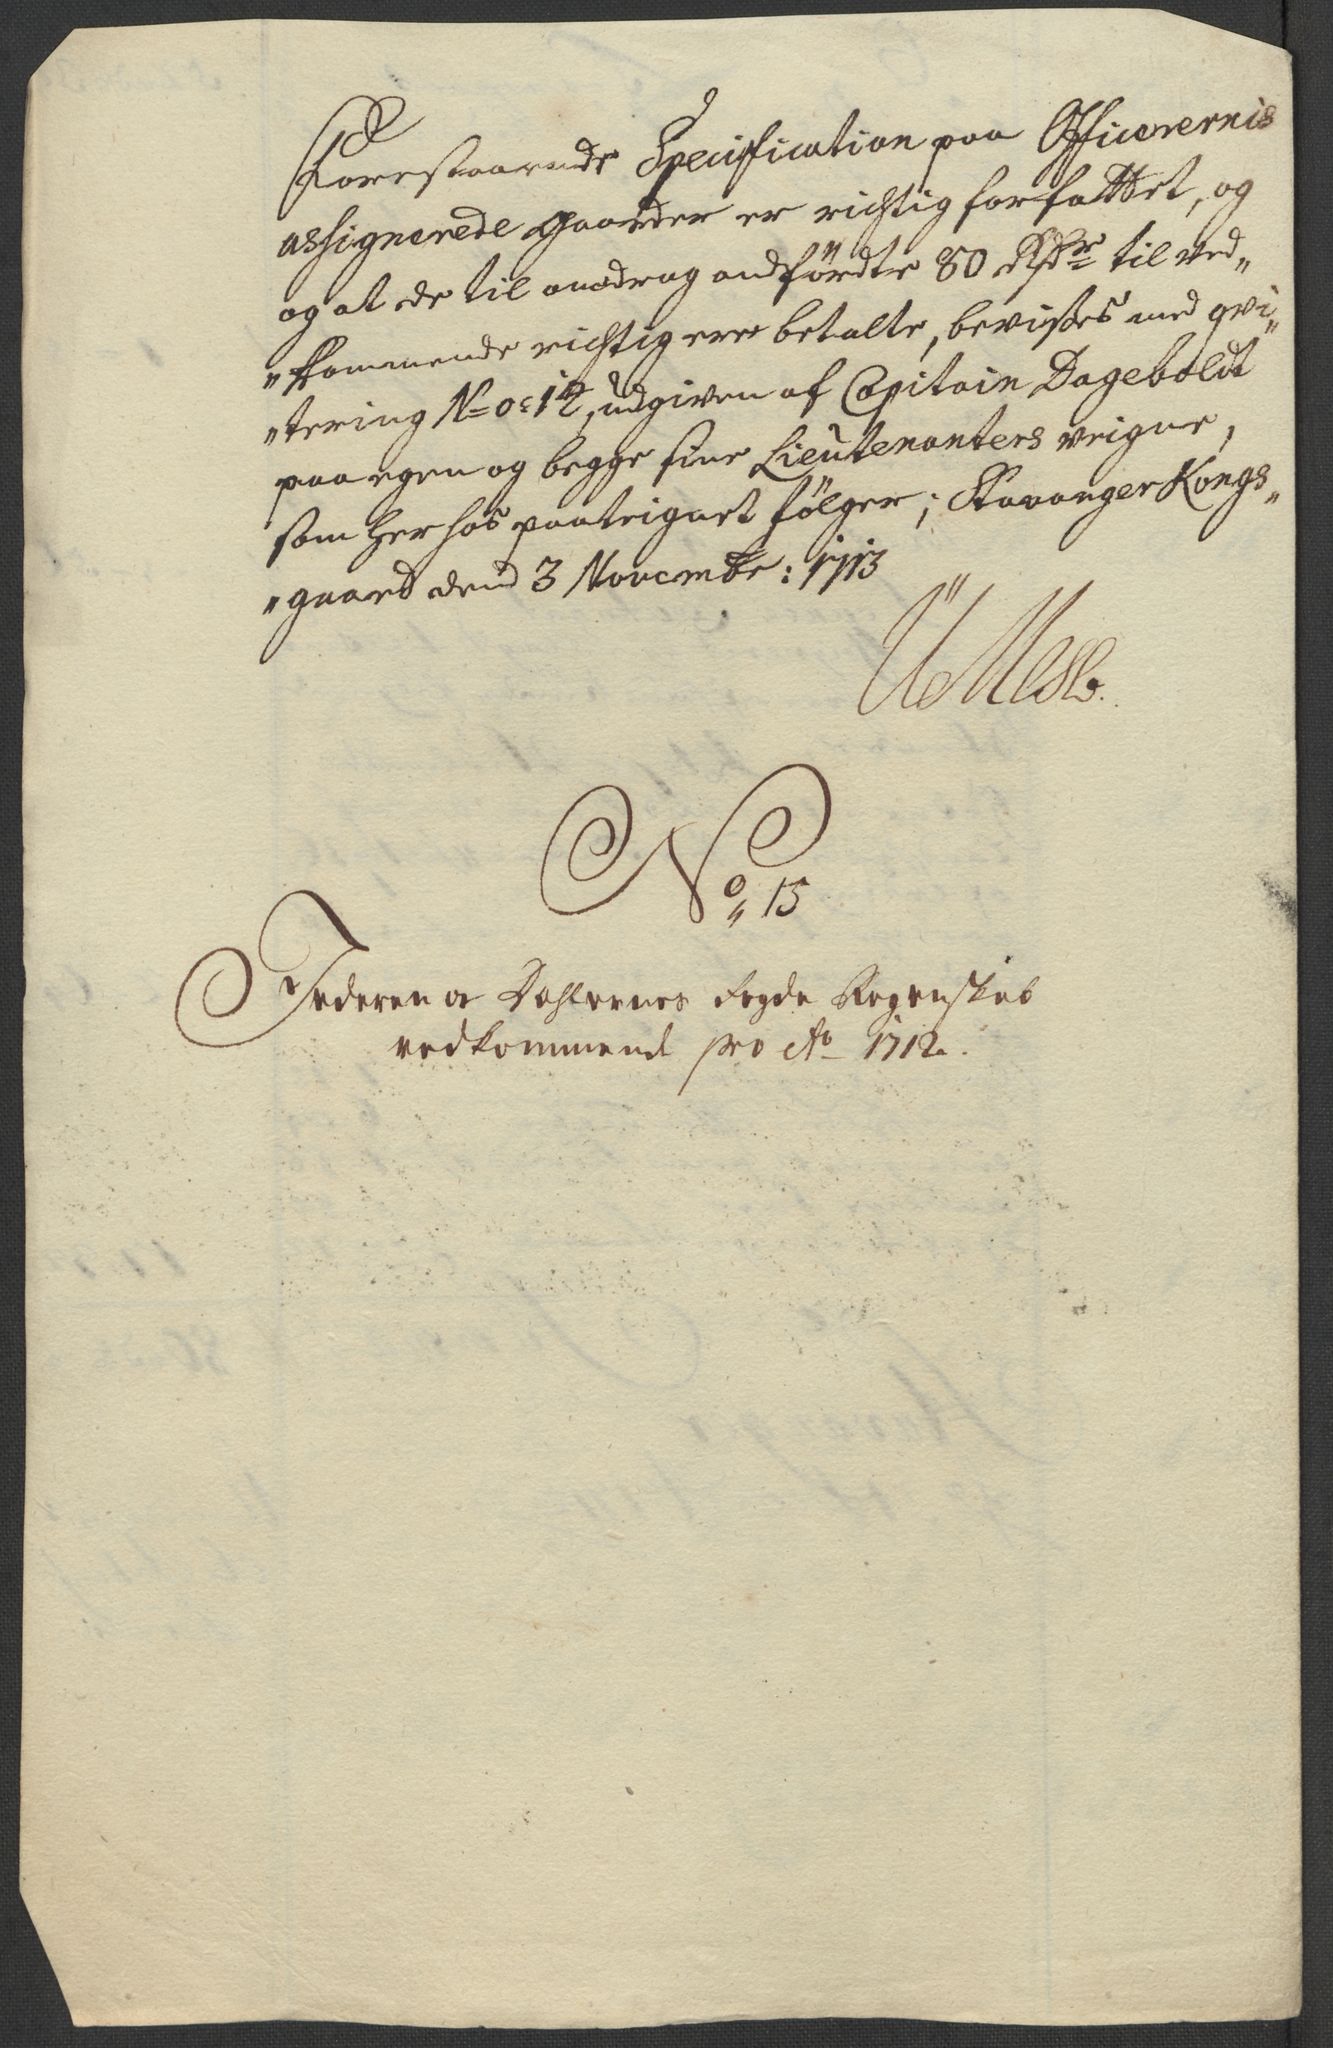 Forestaaende Specification paa Officerernis
assignerede gaarder er richtig forfattet, og
og at de til anodrag andførdte 80 Rdr til ved„
„kommende richtig ere betalte, bevises med qvi„
„tering No: 12, udgiven af Capitain Dageboldt
paa egen og begge sine Lieutenanters veigne,
som her hos paateignet følger; Stavanger Kongs„
„gaard dend 3 Novembr: 1713
No 15
Jederen og Dahlernes fogde Regenskab
vedkommend pro Ao 1712.